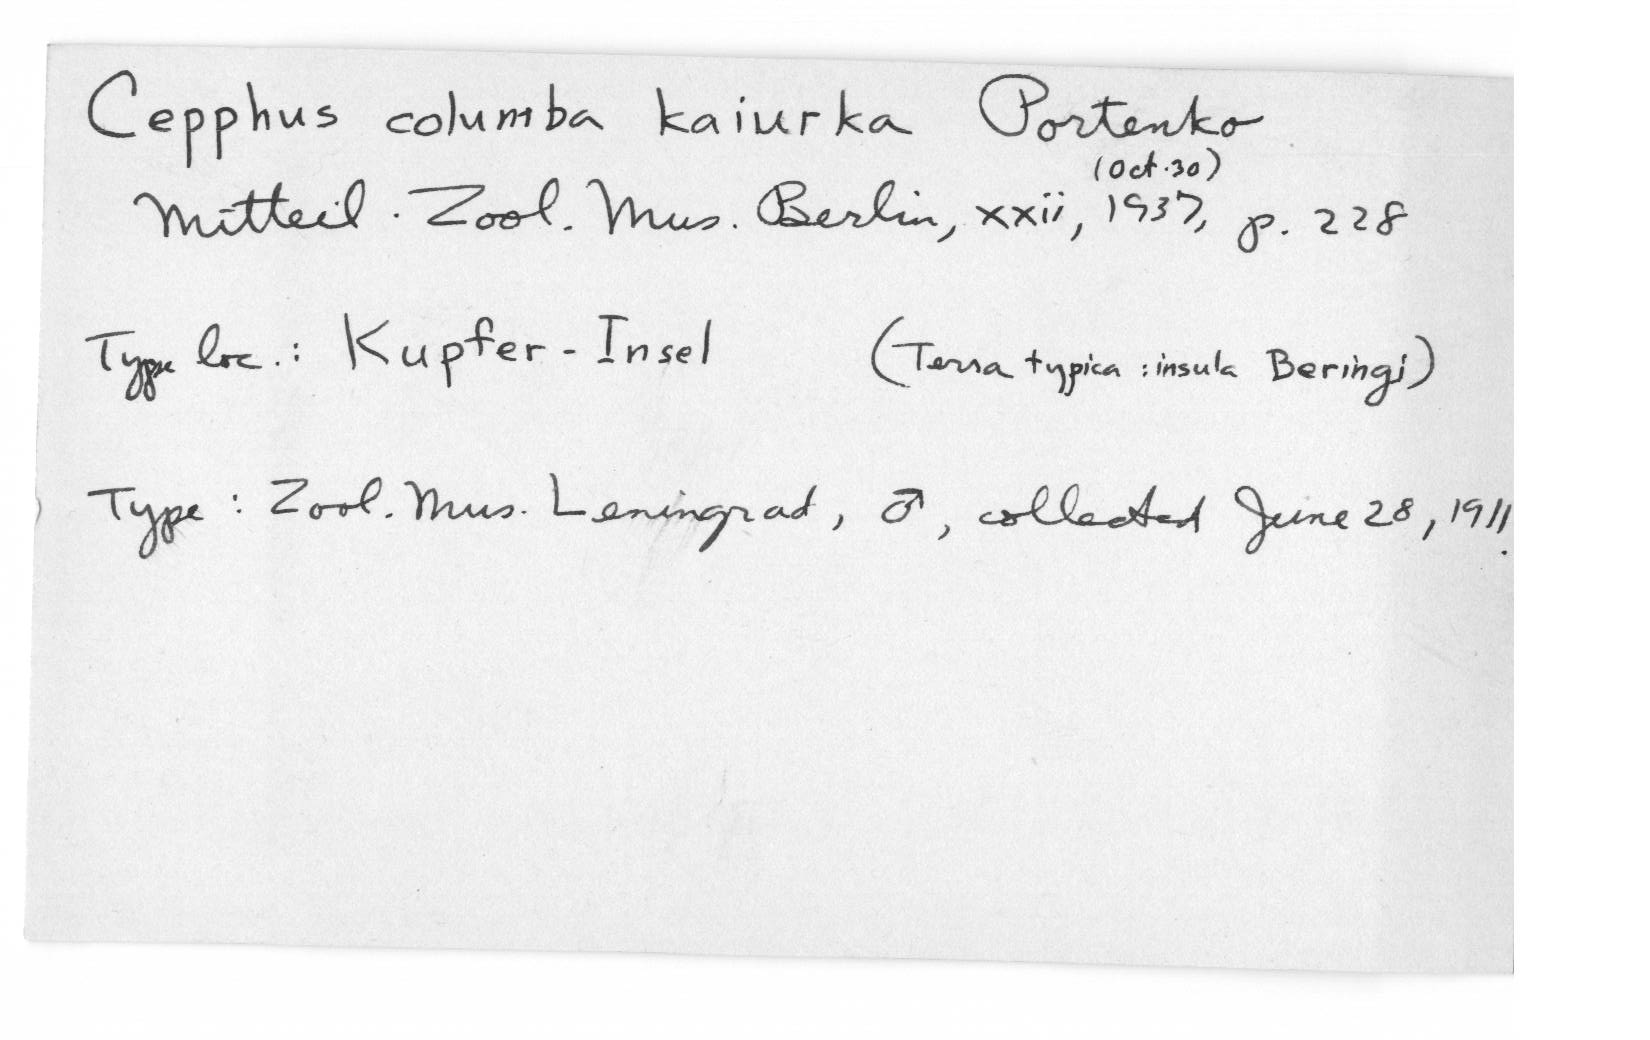 Cepphus columba kaiurka Portenko
(Oct. 30)
Mitteil. Zool. Mus. Berlin, xxii, 1937, p. 228
Type loc.: Kupfer-Insel (Terra typica: insula Beringi)
Type: Zool. Mus. Leningrad, ♂, collected June 28, 1911.